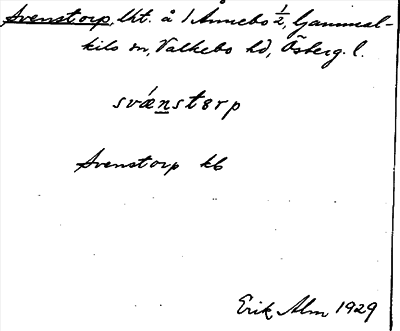 Svenstorp, lht. å 1 Annebo ½, Gammal-
kils sn, Valkebo hd, Ösberg. l.
svǽnstɵrp
Svenstorp kb
Erik Alm 1929